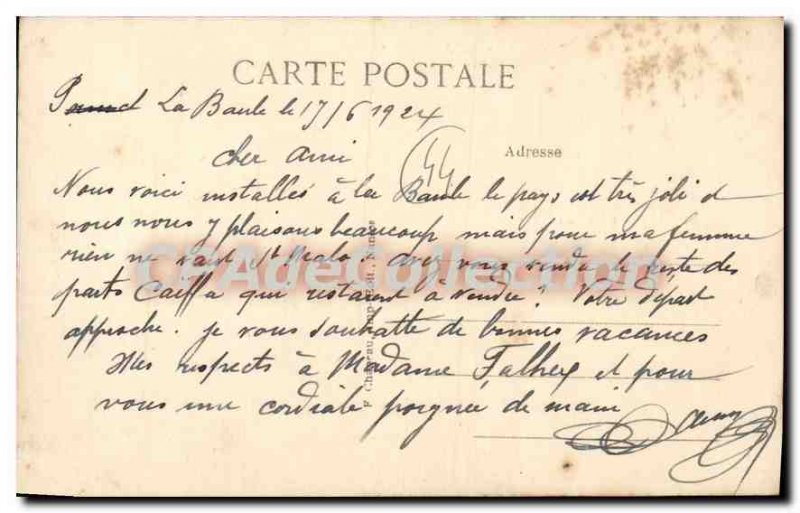 CARTE POSTALE
La Baule le 17/6 1924
cher ami
44
Adresse
Nous voici installés à la Baule le pays est très joli et
nous nous y plaisons beaucoup mais pour ma femme
rien ne vaut St Malo. avez vous vendu le reste des
parts Caiffa qui restaient à vendre? Votre départ
approche. je vous souhaite de bonnes vacances
Mes respects à Madame et pour
vous une cordiale poignée de main
CPAdeCollection
F. Chapeau, Imp.-Edit., Nantes